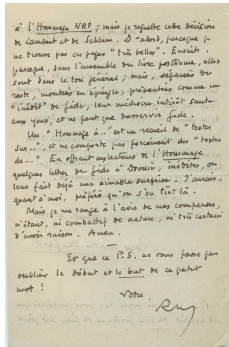 à l'Hommage NRF ; mais je regrette cette décision
de Lambert et de Schlum. D'abord, parce que je
ne trouve pas ces pages "très belles". Ensuite,
parce que, dans l'ensemble du livre posthume, elles
sont dans le ton général ; mais, séparées du
reste, montées en épingle, présentées comme un
"inédit" de Gide, leur médiocrité saute
aux yeux, et ne peut que desservir Gide.
Un "Hommage à.." est un recueil de "textes
sur..", et ne comporte pas forcément des "textes
de..." En offrant aux lecteurs de l'Hommage
quelques lettres de Gide à Drouin, inédites, on
leur fait déjà une aimable surprise. J'aurais,
quant à moi, préféré qu'on s'en tînt là.
Mais je me range à l'avis de mes compères,
n'étant, ni combattif de nature, ni très certain
d'avoir raison. Amen.
—
Et que ce P.S. ne vous fasse pas
oublier le début et le but de ce petit
mot !
Votre